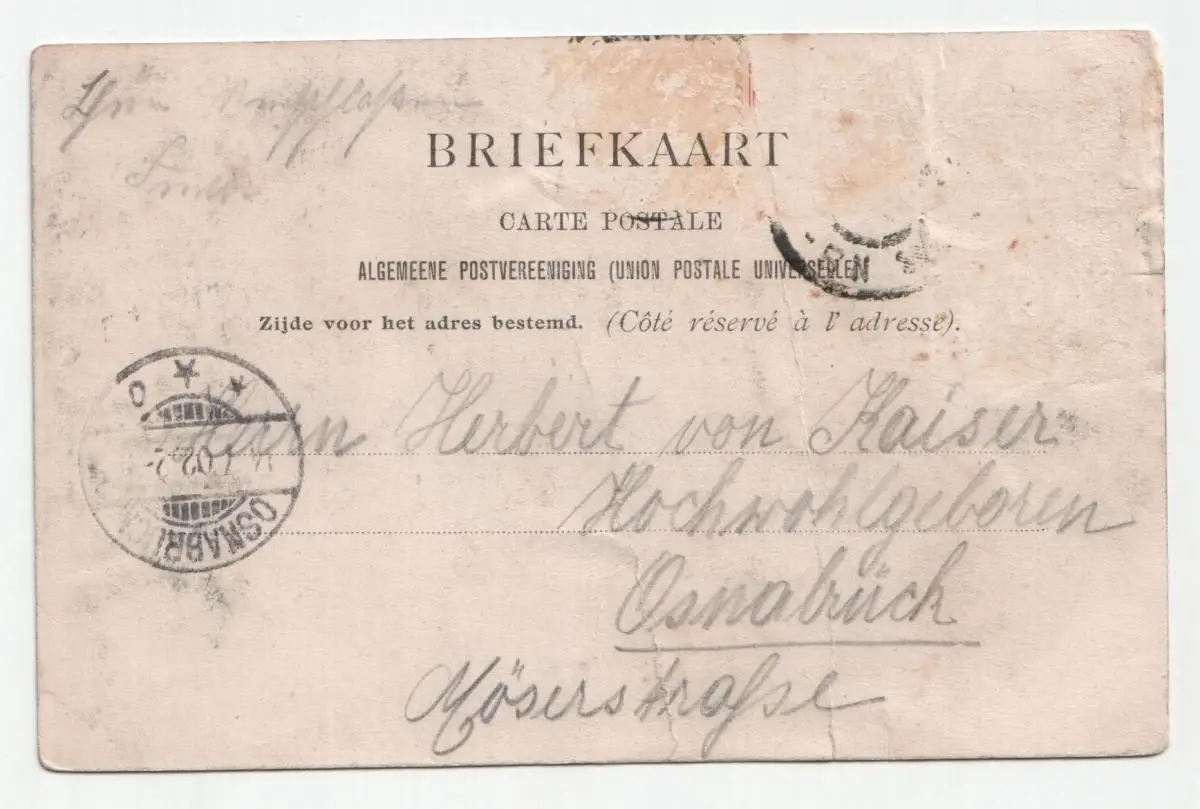 BRIEFKAART
CARTE POSTALE
ALGEMEENE POSTVEREENIGING (UNION POSTALE UNIVERSELLE)
Zijde voor het adres bestemd. (Côté réservé à l' adresse).
Herrn Herbert von Kaiser
Hochwohlgeboren
Osnabrück
Möserstraße
OSNABRÜCK
02